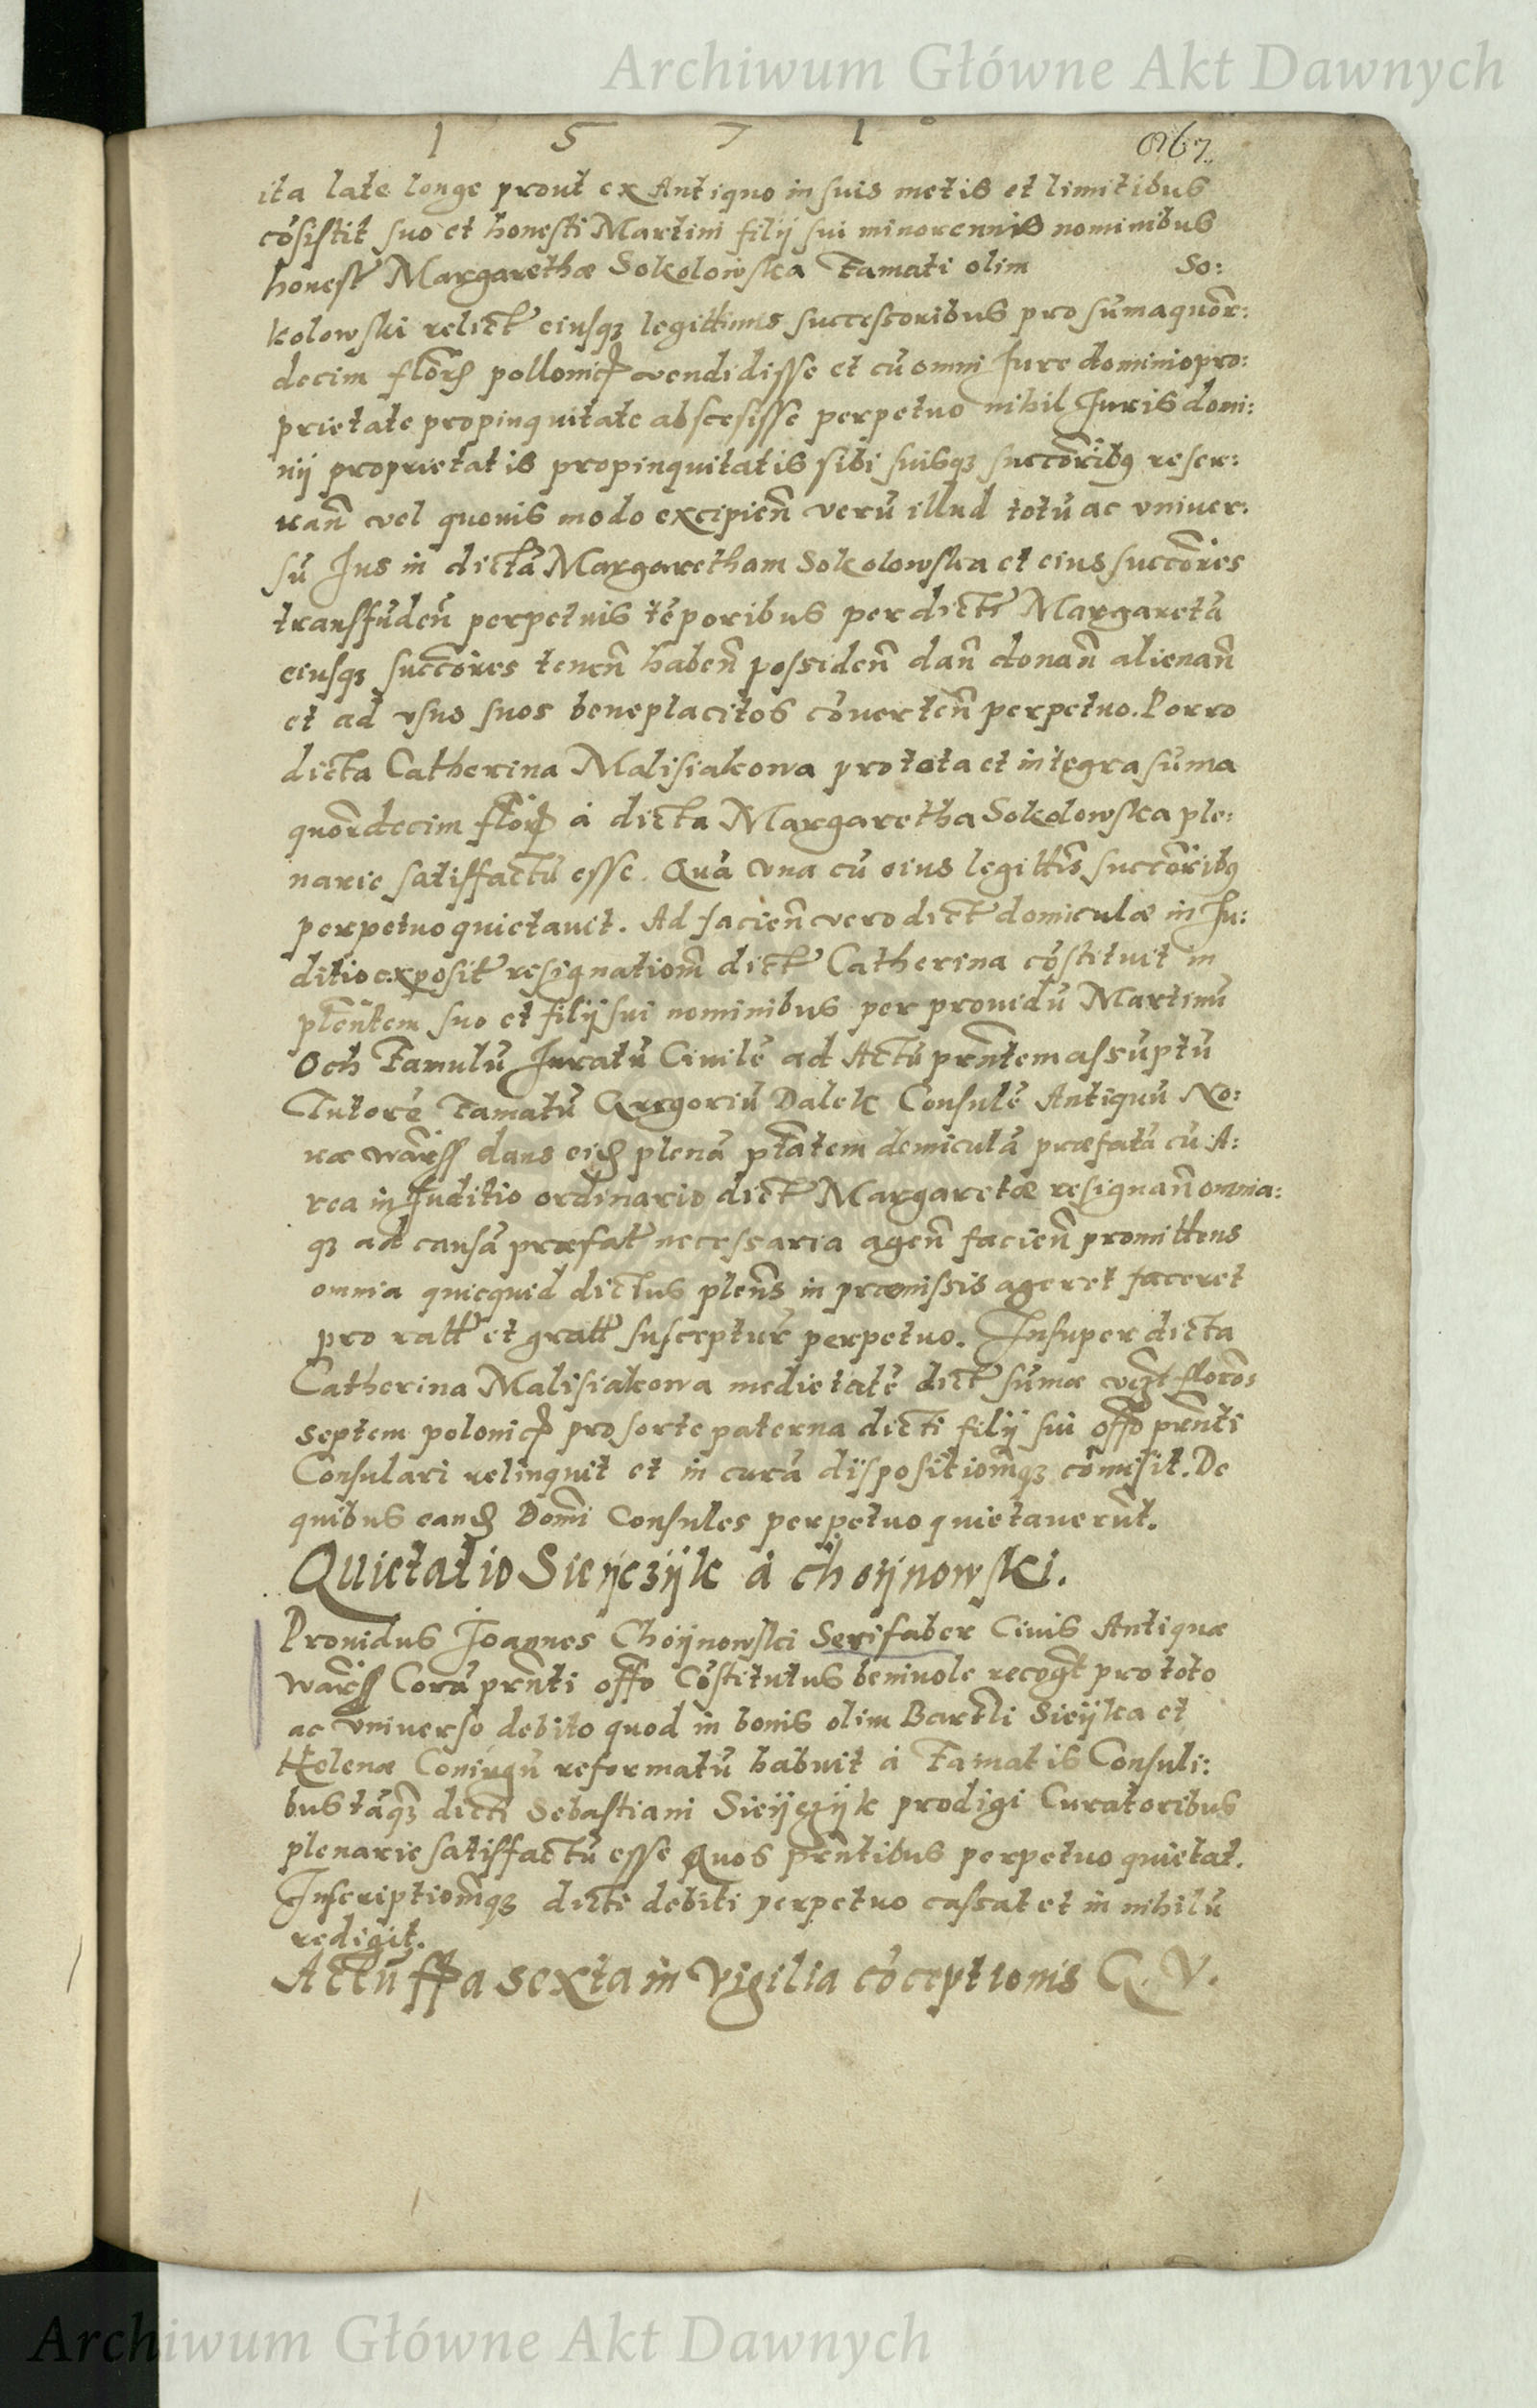 Archiwum Główne Akt Dawnych
1 5 7 1
ita late longe prout ex Antiquo in suis metis et limitibus
cōsistit suo et honesti Martini filij sui minorennis nominibus
honest Margarethæ Sokolowska Famati olim So:
kolowski relict eiusq legittimis successoribus pro sūma quōr:
decim flōr pollonic vendidisse et cū omni Jure dominio pro:
prietate propinquitate abscesisse perpetuo nihil Juris domi:
nij proprietatis propinquitatis sibi suisq succōribq reser:
uan̄ vel quouis modo excipien̄ verū illud totū ac vniuer:
sū Jus in dictā Margaretham Sokolowska et eius succōres
transfūden̄ perpetuis tēporibus per dict Margaretā
eiusq succōres tenen̄ haben̄ possiden̄ dan̄ donan̄ alienan̄
et ad vsus suos beneplacitos cōuerten̄ perpetuo. Porro
dicta Catherina Malisiakowa pro tota et integra sūma
quōrdecim flōr à dicta Margaretha Sokolowska ple:
narie satisfactū esse. Quā vna cū eius legittīs succōribq
perpetuo quietauit. Ad facien̄ vero dict domiculæ in Ju:
ditio exposit resignatiōm dict Catherina cōstituit in
plēntem suo et filij sui nominibus per prouidū Martinū
Och Famulū Juratū Ciuilē ad Actū prn̄tem assūptū
Tutorē Famatū Gregoriū Dalek Consulē Antiquū No:
uæ wārss dans eid plenā ptātem domiculā præfatā cū A:
rea in Juditio ordinario dict Margaretæ resignan̄ omnia:
q ad causā præfat necessaria agen̄ facien̄ promittens
omnia quicquid dictus plen̄s in præmissis ageret faceret
pro ratt et gratt susceptur perpetuo. Insuper dicta
Catherina Malisiakowa medietatē dict sūmæ vēgt florōs
septem polonic pro sorte paterna dicti filij sui offō prn̄ti
Consulari relinquit et in curā dispositiōmq cōmisit. De
quibus eand Domī Consules perpetuo quietauerūt.
Quietatio Sieijczijk à Choijnowski.
Prouidus Joannes Choijnowski Serifaber Ciuis Antiquæ
wārss Corā prn̄ti offō Cōstitutus beniuole recogt pro toto
ac vniuerso debito quod in bonis olim Bartli Sieijka et
Helenæ Coniugū reformatū habuit à Famatis Consuli:
bus tāq dicti Sebastiani Sieijczijk prodigi Curatoribus
plenarie satisfactū esse Quos prn̄tibus perpetuo quietat.
Inscriptiōmq dicti debiti perpetuo cassat et in nihilū
redigit.
Actū ffa sexta in Vigilia cōceptionis G. V.
Archiwum Główne Akt Dawnych